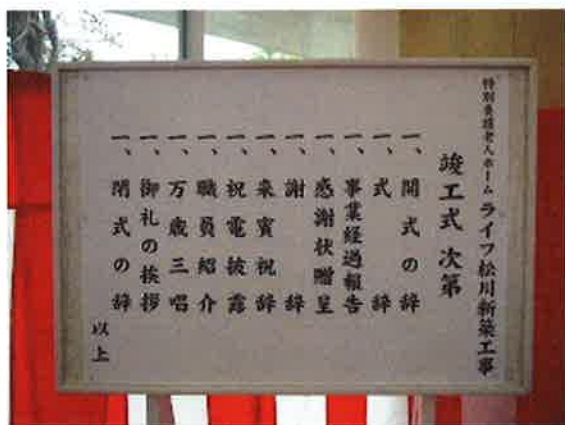 特別養護老人ホーム ライフ松川新築工事
竣工式 次第
一、開式の辞
一、式辞
一、事業経過報告
一、感謝状贈呈
一、謝辞
一、来賓祝辞
一、祝電披露
一、職員紹介
一、万歳三唱
一、御礼の挨拶
一、閉式の辞
以上